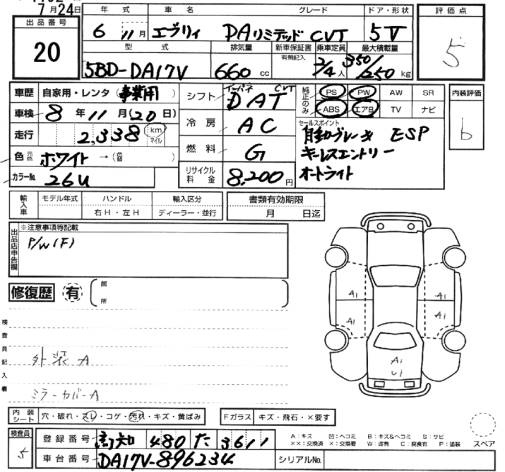 7月24日
出品番号
20
年式 車名 グレード ドア・形状
6年11月 エヴリィ DAリミテッド CVT 5V
型式 排気量 新車保証書 乗車定員 最大積載量
有無記入
5BD-DA17V 660cc 2/4人 350/250kg
評価点
5
車歴 自家用・レンタ・事業用
車検 8年11月(20日)
走行 2,338 km マイル
色 ホワイト→(
カラーNo. 26U
シフト インパネ CVT DAT
冷房 AC
燃料 G
リサイクル料金 8,200円
純正のみ PS PW AW SR
ABS エアB TV ナビ
セールスポイント
自動ブレーキ ESP
キーレスエントリー
オートライト
内装評価
b
輸入車 モデル年式 ハンドル 輸入区分
右H・左H ディーラー・並行
書類有効期限
月 日迄
出品店申告欄
※注意事項等記載
P/W(F)
修復歴 有 箇所
検査員記入者
外装A
ミラーカバーA
A1
A1
A1
U1
内装シート 穴・破れ・スレ・コゲ・汚れ・キズ・黄ばみ
Fガラス キズ・飛石・×要す
スペア
検査員
5
登録番号 高知 480 た 3611
車台番号 DA17V-896234
シリアルNo.
A:キズ U:ヘコミ B:キズ&ヘコミ S:サビ